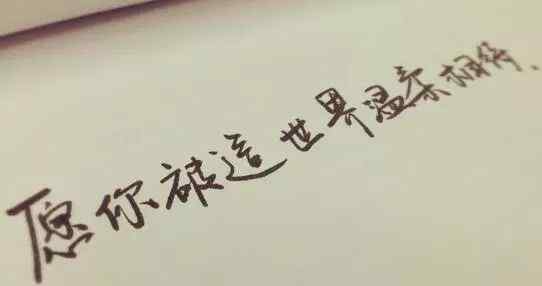 愿你被这世界温柔相待.